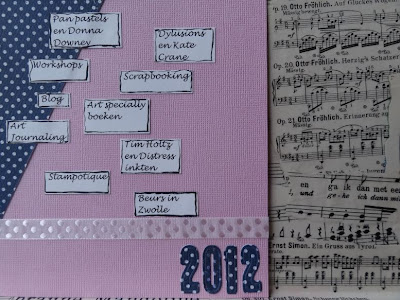 Pan pastels
en Donna
Downey
Dylusions
en Kate
Crane
Workshops
Scrapbooking
Blog
Art specially
boeken
Art
Journaling
Tim Holtz
en Distress
inkten
Stampotique
Beurs in
Zwolle
2012
Nº 19. Otto Fröhlich. Auf Glückes Wogen
Mässig bewegt.
Nº 20. Otto Fröhlich. Herzig's Schatzer
Mässig.
Op. 21. Otto Fröhlich. Erinnerung
en ga ik dan met een
4. und gehe ich dann mi
Ernst Simon. Ein Gruss aus Tyrol.